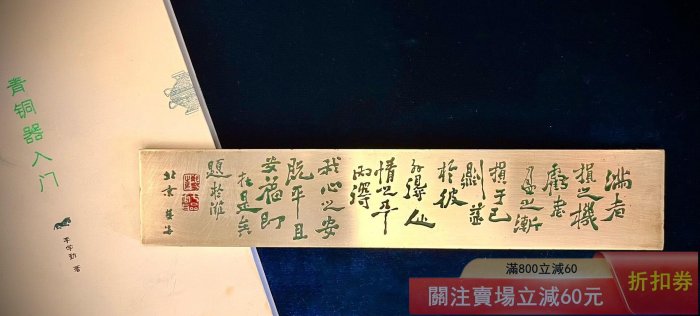 青铜器入门
李学勤 著
滿者
損之機
虧者
盈之漸
損于己
則益
於彼
外得人
情之平
内得
我心之安
既平且
安福即
在是矣
題於濰
北京
滿800立減60
關注賣場立減60元
折扣券